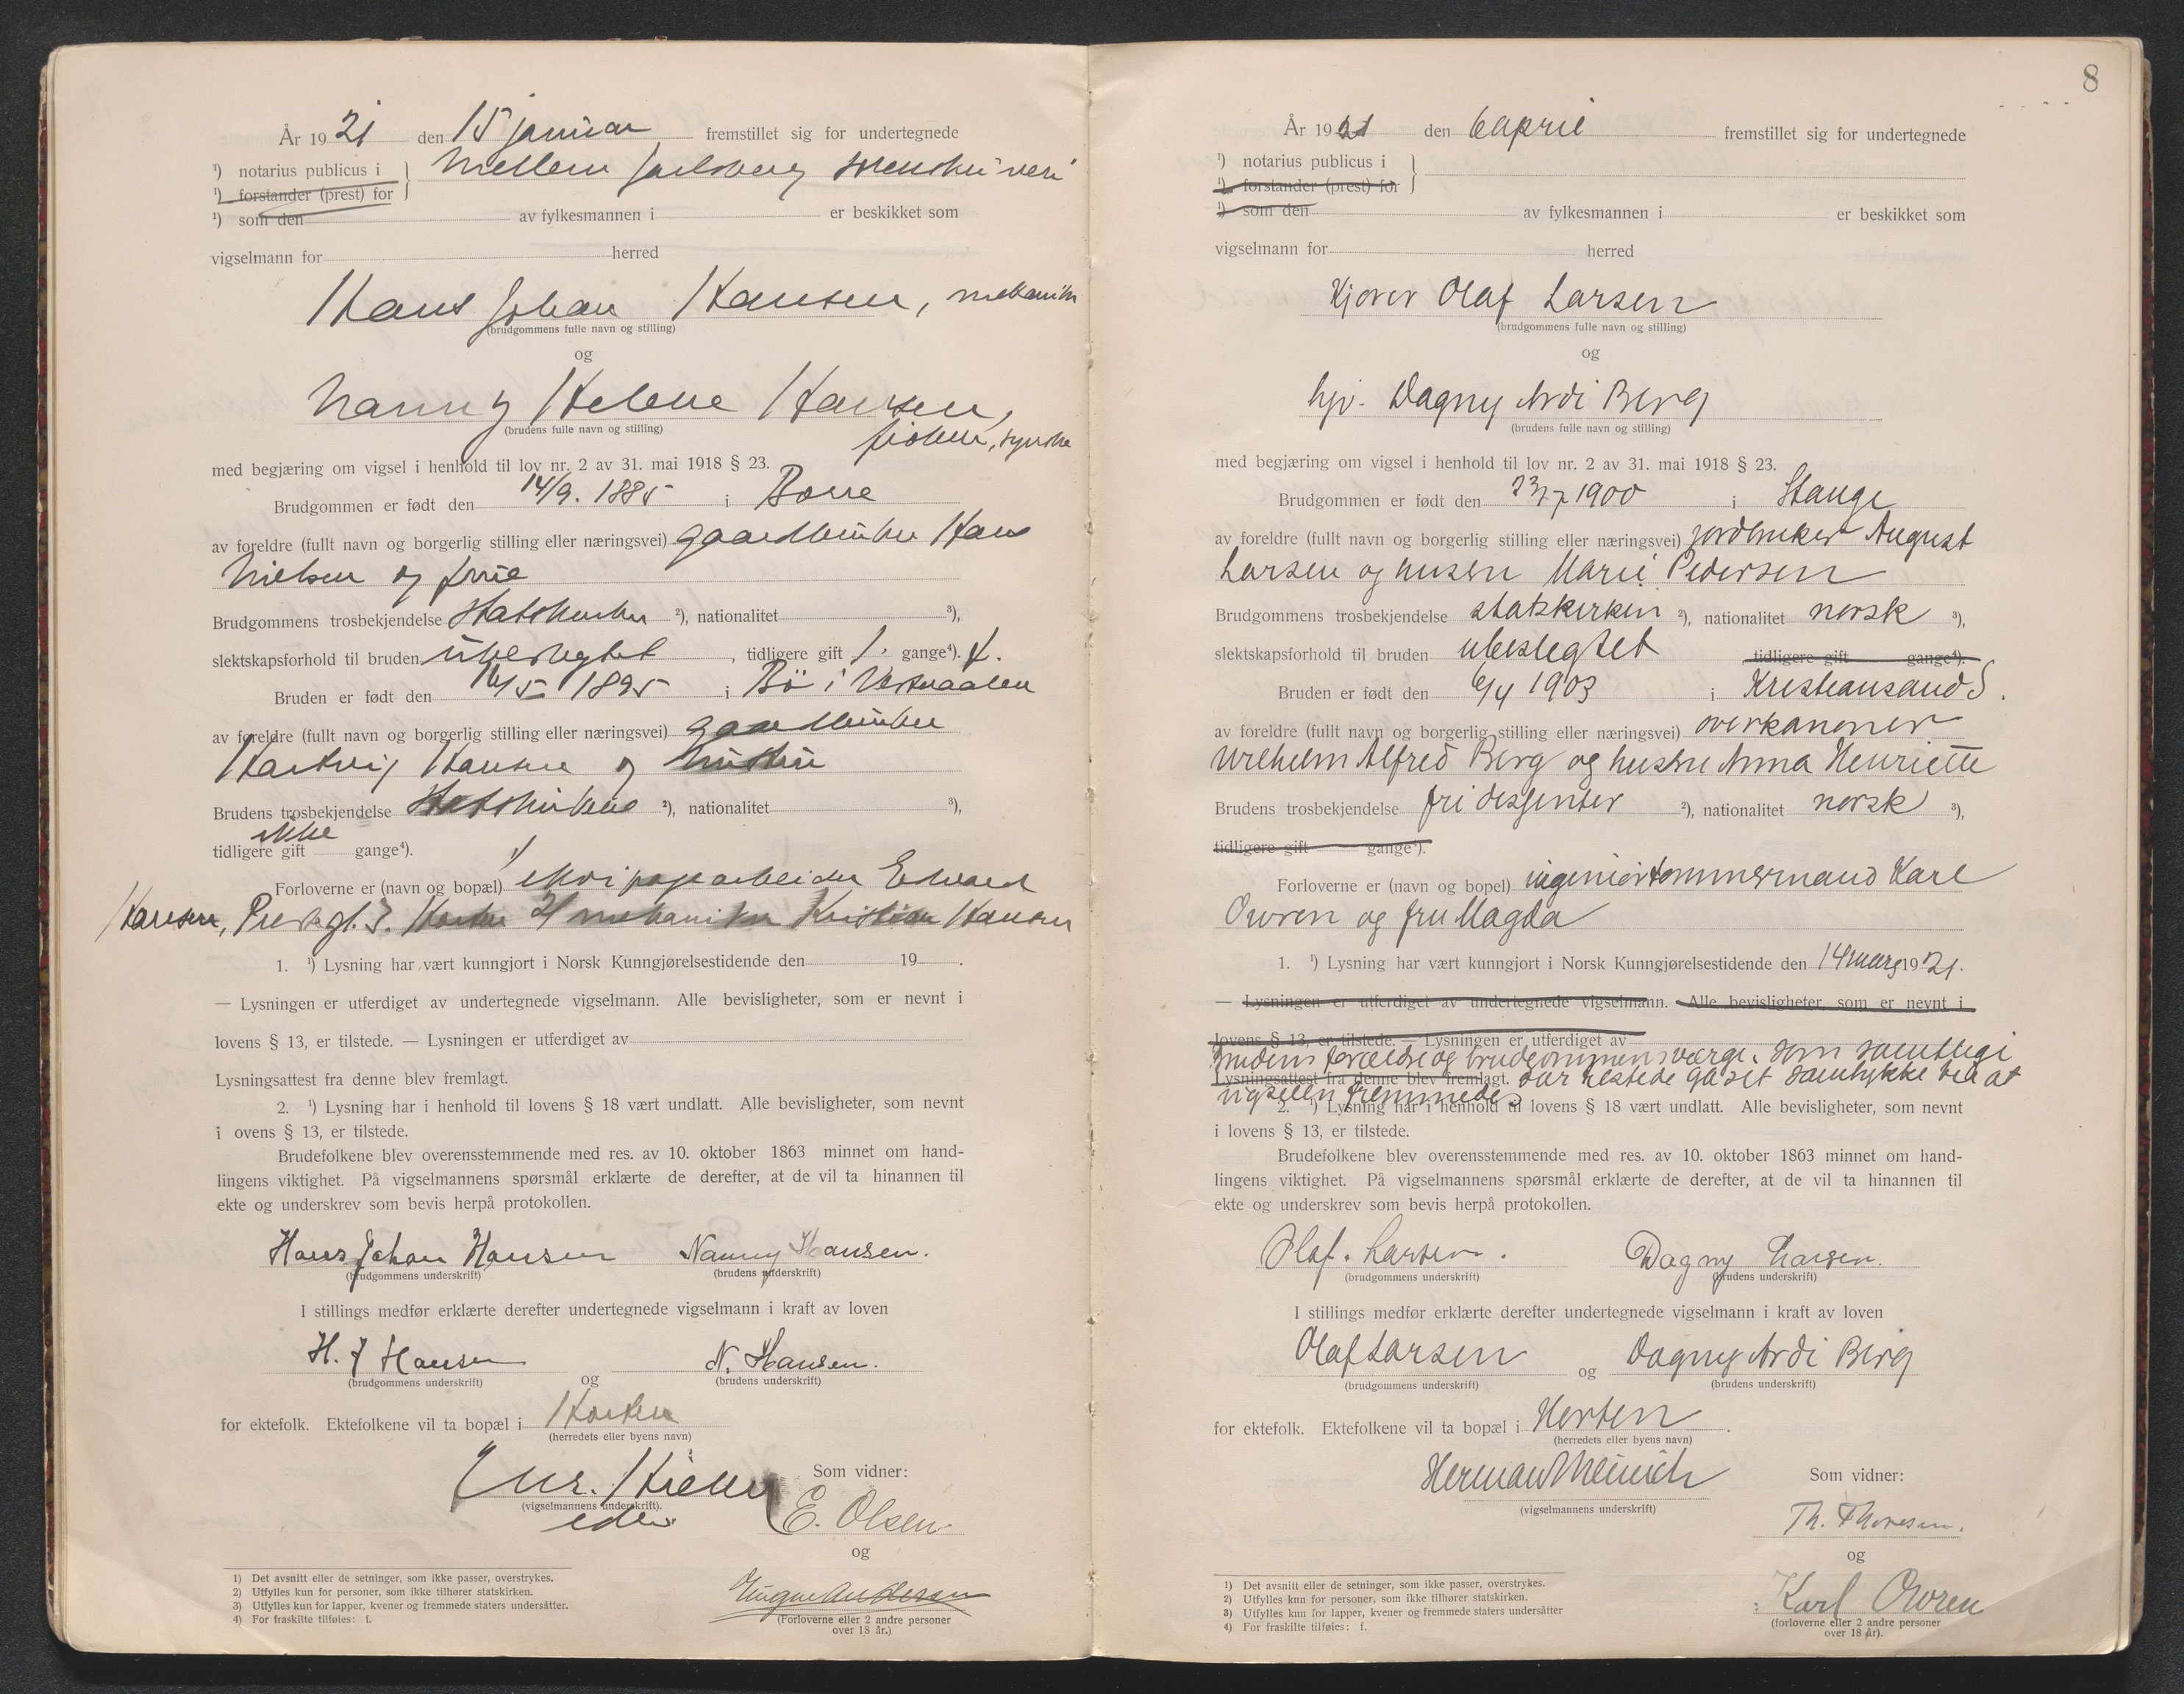 År 1921 den 15 januar fremstillet sig for undertegnede
¹) notarius publicus i } Mellem Jarlsberg sorenskriveri
¹) forstander (prest) for
¹) som den av fylkesmannen i er beskikket som
vigselmann for herred
Hans Johan Hansen, mekaniker
(brudgommens fulle navn og stilling)
og
Nanny Helene Hansen,
(brudens fulle navn og stilling)
frøken, syerske
med begjæring om vigsel i henhold til lov nr. 2 av 31. mai 1918 § 23.
Brudgommen er født den 14/9. 1885 i Borre
av foreldre (fullt navn og borgerlig stilling eller næringsvei) gaardbruker Hans
Nielsen og frue
Brudgommens trosbekjendelse Statskirken ²), nationalitet ³),
slektskapsforhold til bruden ubeslegtet, tidligere gift 1. gange⁴). f.
Bruden er født den 16/5 1895 i Bö i Vesteraalen
av foreldre (fullt navn og borgerlig stilling eller næringsvei) gaardbruker
Hartvig Hansen og hustru
Brudens trosbekjendelse Statskirken ²), nationalitet ³),
ikke
tidligere gift gange⁴).
Forloverne er (navn og bopæl) 1/ ekvipagearbeider Edvard
Hansen, Prestegt. 3. Horten 2/ mekaniker Kristian Hansen
1. ¹) Lysning har vært kunngjort i Norsk Kunngjørelsestidende den 19 .
— Lysningen er utferdiget av undertegnede vigselmann. Alle bevisligheter, som er nevnt i
lovens § 13, er tilstede. — Lysningen er utferdiget av
Lysningsattest fra denne blev fremlagt.
2. ¹) Lysning har i henhold til lovens § 18 vært undlatt. Alle bevisligheter, som nevnt
i ovens § 13, er tilstede.
Brudefolkene blev overensstemmende med res. av 10. oktober 1863 minnet om hand-
lingens viktighet. På vigselmannens spørsmål erklærte de derefter, at de vil ta hinannen til
ekte og underskrev som bevis herpå protokollen.
Hans Johan Hansen Nanny Hansen.
(brudgommens underskrift) (brudens underskrift)
I stillings medfør erklærte derefter undertegnede vigselmann i kraft av loven
H. J Hansen og N. Hansen.
(brudgommens underskrift) (brudens underskrift)
for ektefolk. Ektefolkene vil ta bopæl i Horten
(herredets eller byens navn)
Som vidner:
(vigselmannens underskrift).
E. Olsen
og
Andersen
(Forloverne eller 2 andre personer
over 18 år.)
1) Det avsnitt eller de setninger, som ikke passer, overstrykes.
2) Utfylles kun for personer, som ikke tilhører statskirken.
3) Utfylles kun for lapper, kvener og fremmede staters undersåtter.
4) For fraskilte tilføies: f.
8
År 1921 den 6 april fremstillet sig for undertegnede
¹) notarius publicus i }
¹) forstander (prest) for
¹) som den av fylkesmannen i er beskikket som
vigselmann for herred
Kjører Olaf Larsen
(brudgommens fulle navn og stilling)
og
hjv. Dagny Ardi Berg
(brudens fulle navn og stilling)
med begjæring om vigsel i henhold til lov nr. 2 av 31. mai 1918 § 23.
Brudgommen er født den 23/7 1900 i Stange
av foreldre (fullt navn og borgerlig stilling eller næringsvei) jordbruker August
Larsen og hustru Marie Pedersen
Brudgommens trosbekjendelse statskirken ²), nationalitet norsk ³),
slektskapsforhold til bruden ubeslegtet tidligere gift gange⁴).
Bruden er født den 6/4 1903 i Kristiansand S.
av foreldre (fullt navn og borgerlig stilling eller næringsvei) overkanoner
Wilhelm Alfred Berg og hustru Anna Henriette
Brudens trosbekjendelse fri dissenter ²), nationalitet norsk ³),
tidligere gift gange⁴).
Forloverne er (navn og bopel) ingeniørtømmermand Karl
Owren og fru Magda
1. ¹) Lysning har vært kunngjort i Norsk Kunngjørelsestidende den 14 mars 1921.
— Lysningen er utferdiget av undertegnede vigselmann. Alle bevisligheter, som er nevnt i
lovens § 13, er tilstede. — Lysningen er utferdiget av
Brudens forældre og brudgommens værge, som samtlige
Lysningsattest fra denne blev fremlagt. var tilstede ga sit samtykke til at
vigselen fremmedes
2. ¹) Lysning har i henhold til lovens § 18 vært undlatt. Alle bevisligheter, som nevnt
i lovens § 13, er tilstede.
Brudefolkene blev overensstemmende med res. av 10. oktober 1863 minnet om hand-
lingens viktighet. På vigselmannens spørsmål erklærte de derefter, at de vil ta hinannen til
ekte og underskrev som bevis herpå protokollen.
Olaf. Larsen. Dagny Larsen.
(brudgommens underskrift) (brudens underskrift)
I stillings medfør erklærte derefter undertegnede vigselmann i kraft av loven
Olaf Larsen og Dagny Ardi Berg
(brudgommens underskrift) (brudens underskrift)
for ektefolk. Ektefolkene vil ta bopæl i Horten .
(herredets eller byens navn)
Herman Meinich Som vidner:
(vigselmannens underskrift)
Th. Thoresen.
og
Karl Owren
(forloverne eller 2 andre personer
over 18 år).
1) Det avsnitt eller de setninger, som ikke passer, overstrykes.
2) Utfylles kun for personer, som ikke tilhører statskirken.
3) Utfylles kun for lapper, kvener og fremmede staters undersåtter
4) For fraskilte tilføies: f.